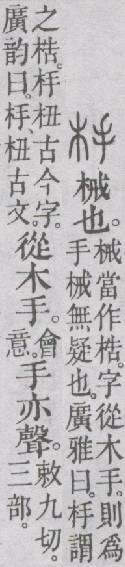 杽 械也。械當作梏。字從木手。則爲手械無疑也。廣雅曰。杽謂
之梏。杽杻古今字。廣韵曰。杽、杻古文。從木手。會意。手亦聲。敕九切。三部。